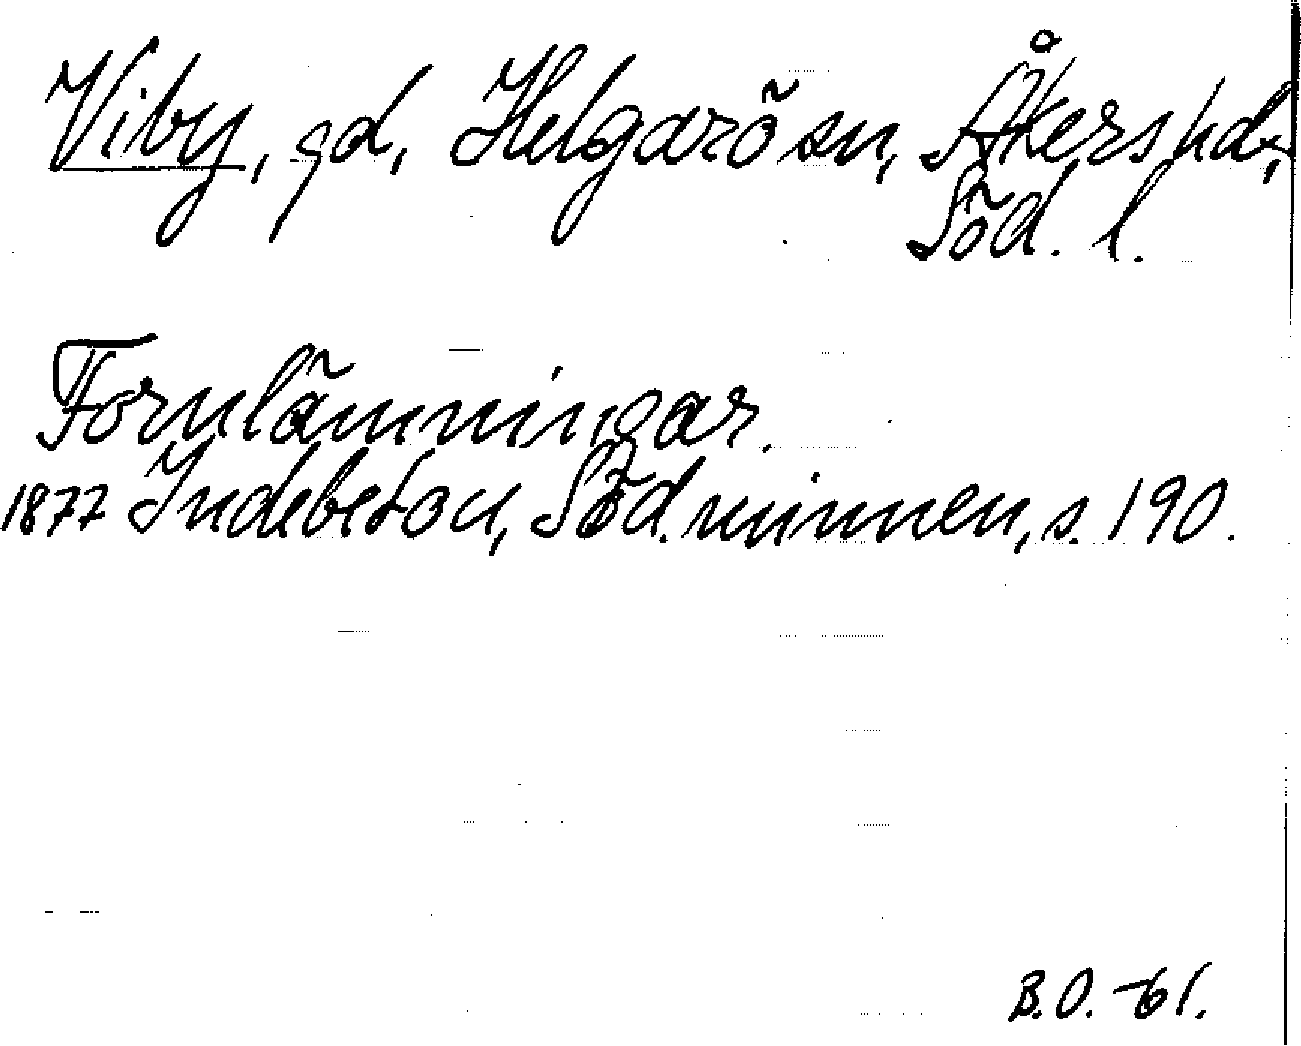 Viby, gd, Helgarö sn, Åkers hd,
Söd. l.
Fornlämningar.
1877 Indebetou, Söd. minnen, s. 190.
B.O. -61.